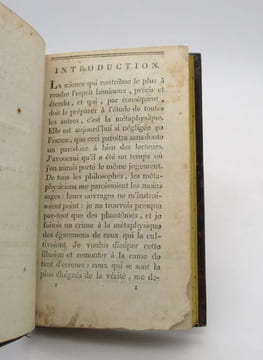 INTRODUCTION.
LA science qui contribue le plus à
rendre l'esprit lumineux, précis et
étendu, et qui, par conséquent,
doit le préparer à l'étude de toutes
les autres, c'est la métaphysique.
Elle est aujourd'hui si négligée en
France, que ceci paroîtra sans doute
un paradoxe à bien des lecteurs.
J'avouerai qu'il a été un temps où
j'en aurois porté le même jugement.
De tous les philosophes, les méta-
physiciens me paroissoient les moins
sages: leurs ouvrages ne m'instrui-
soient point: je ne trouvois presque
par-tout que des phantômes, et je
faisois un crime à la métaphysique
des égaremens de ceux qui la cul-
tivoient. Je voulus dissiper cette
illusion et remonter à la cause de
tant d'erreurs: ceux qui se sont le
plus éloignés de la vérité, me de-
1